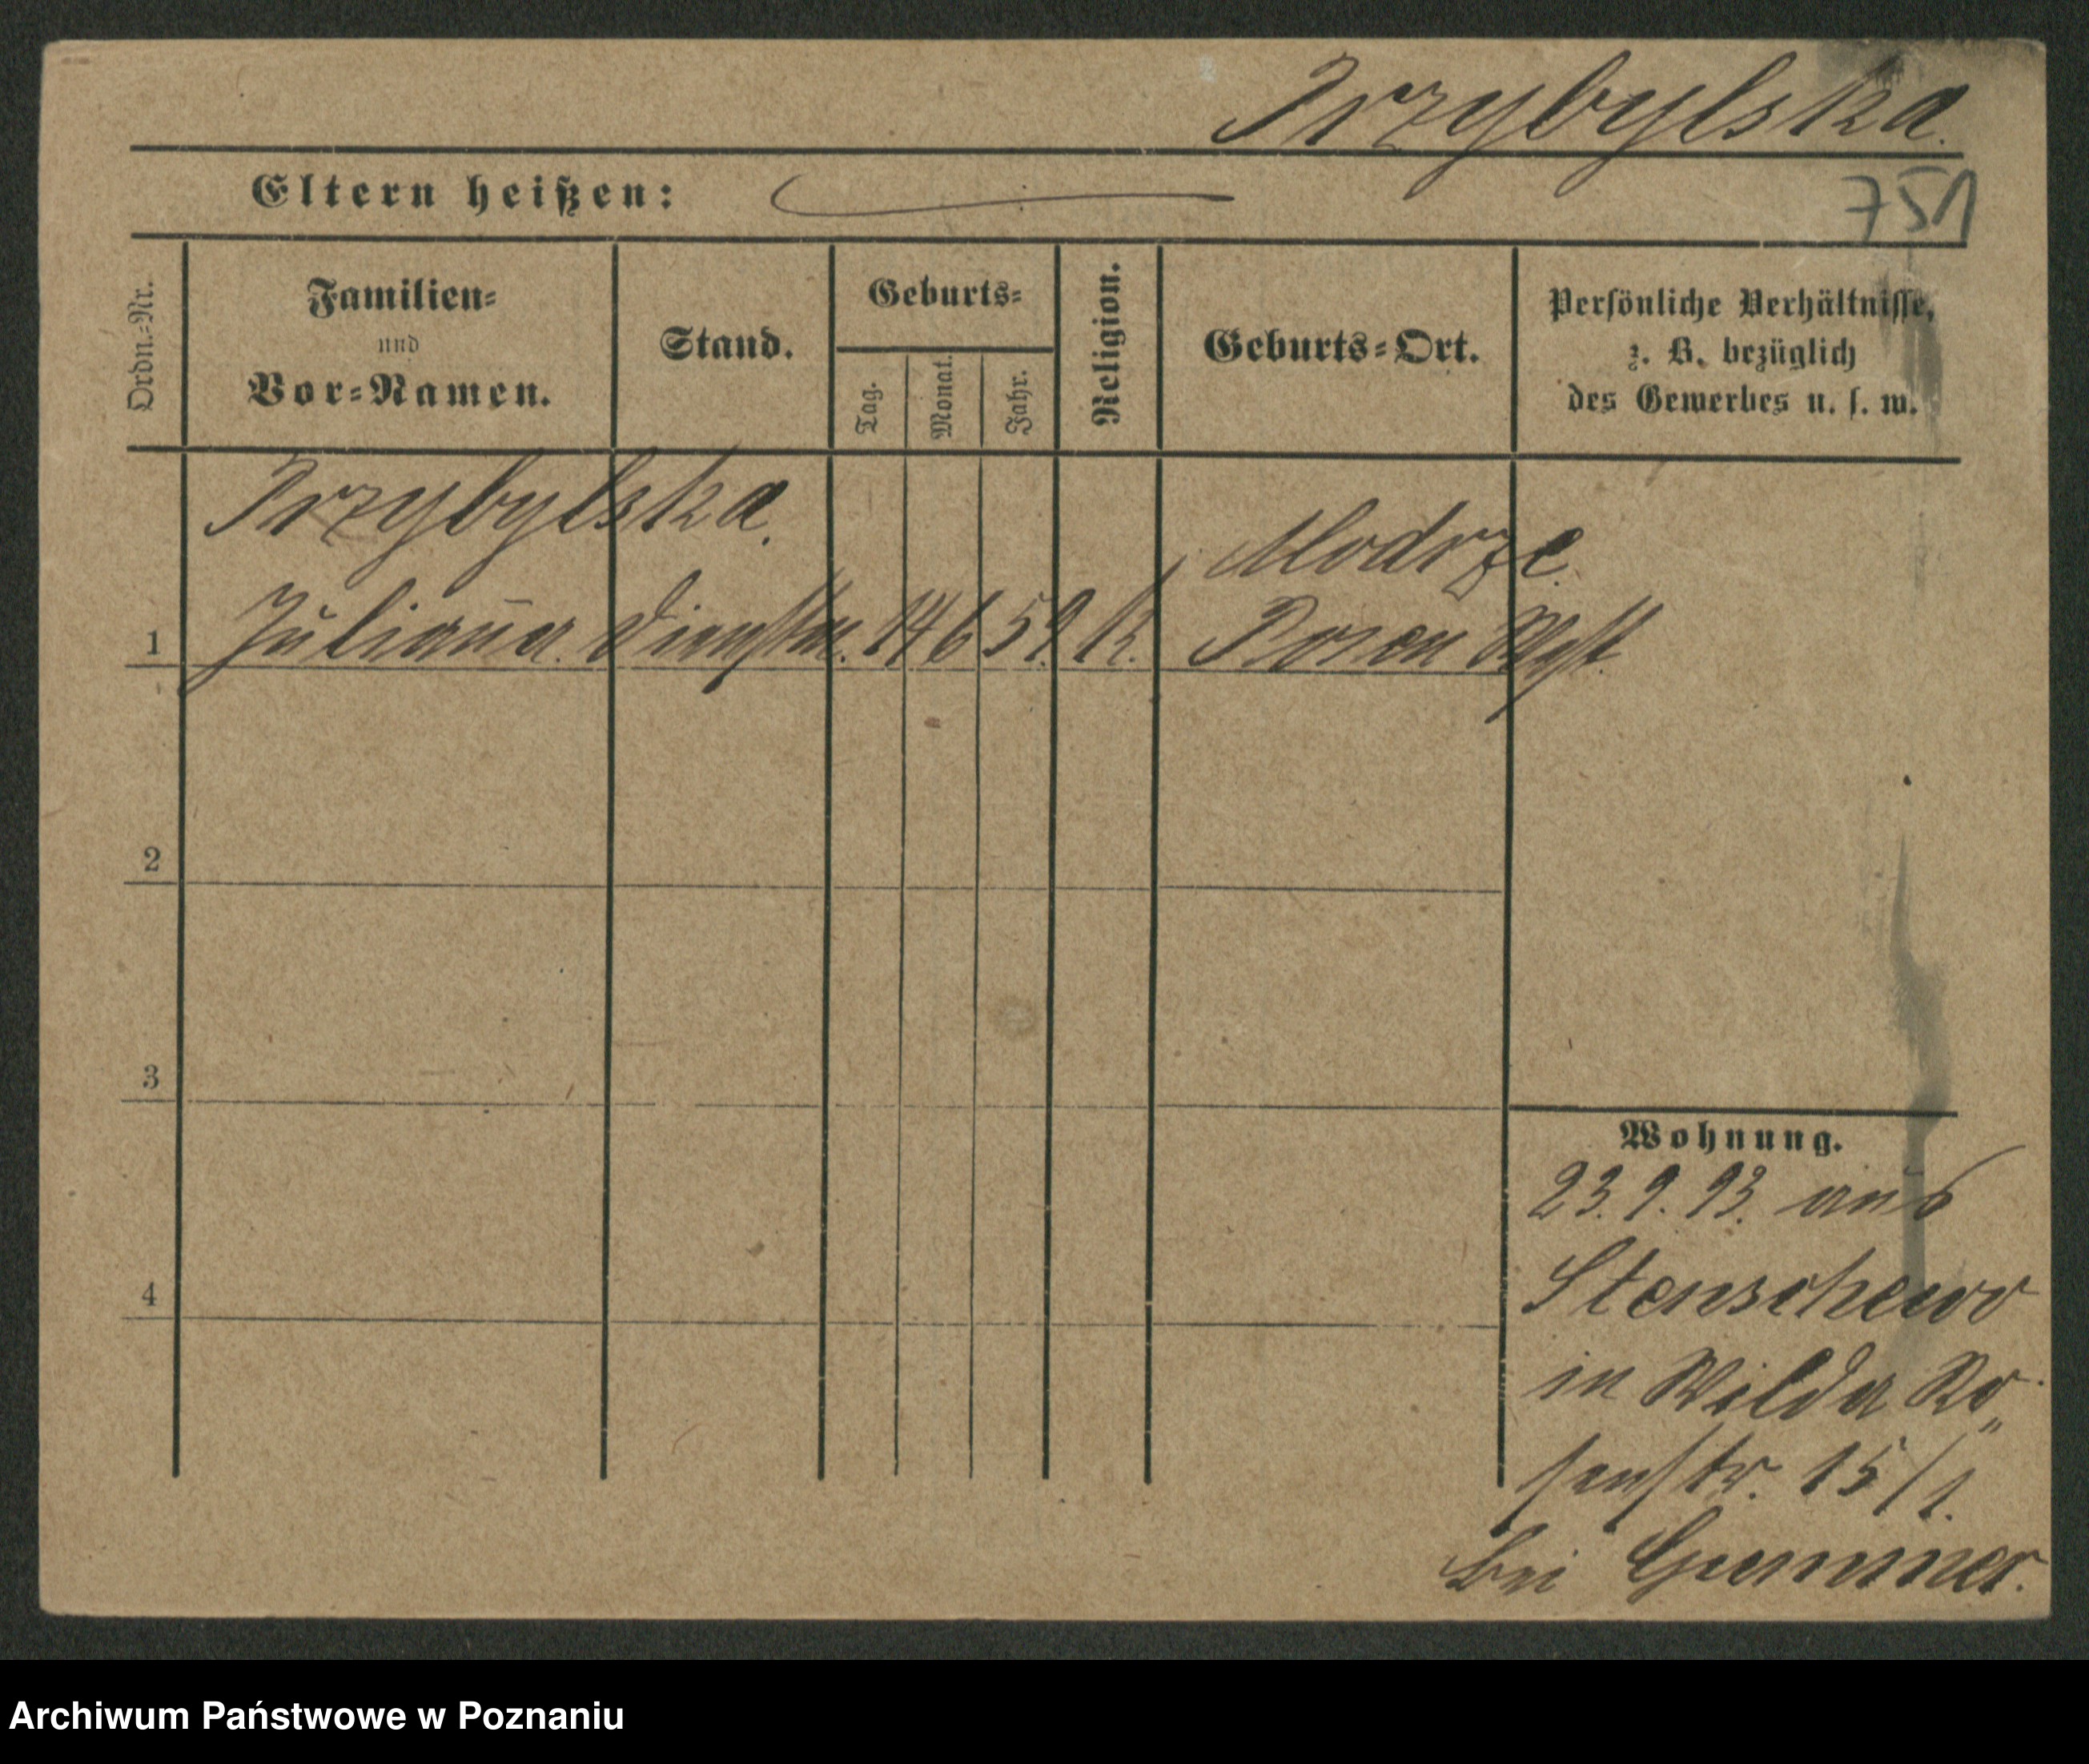 Przybylska.
Eltern heißen:
751
Ordn.=Nr.
Familien=
und
Vor=Namen.
Stand.
Geburts=
Tag.
Monat.
Jahr.
Religion.
Geburts=Ort.
Persönliche Verhältnisse,
z. B. bezüglich
des Gewerbes u. s. w.
Przybylska.
Modrze.
1 Juliana. Dienstm. 14 6 59. k. Posen West.
2
3
4
Wohnung.
23. 9. 93. aus
Stenschewo
in Wilda Ro„
senstr. 15/1.
bei
Archiwum Państwowe w Poznaniu